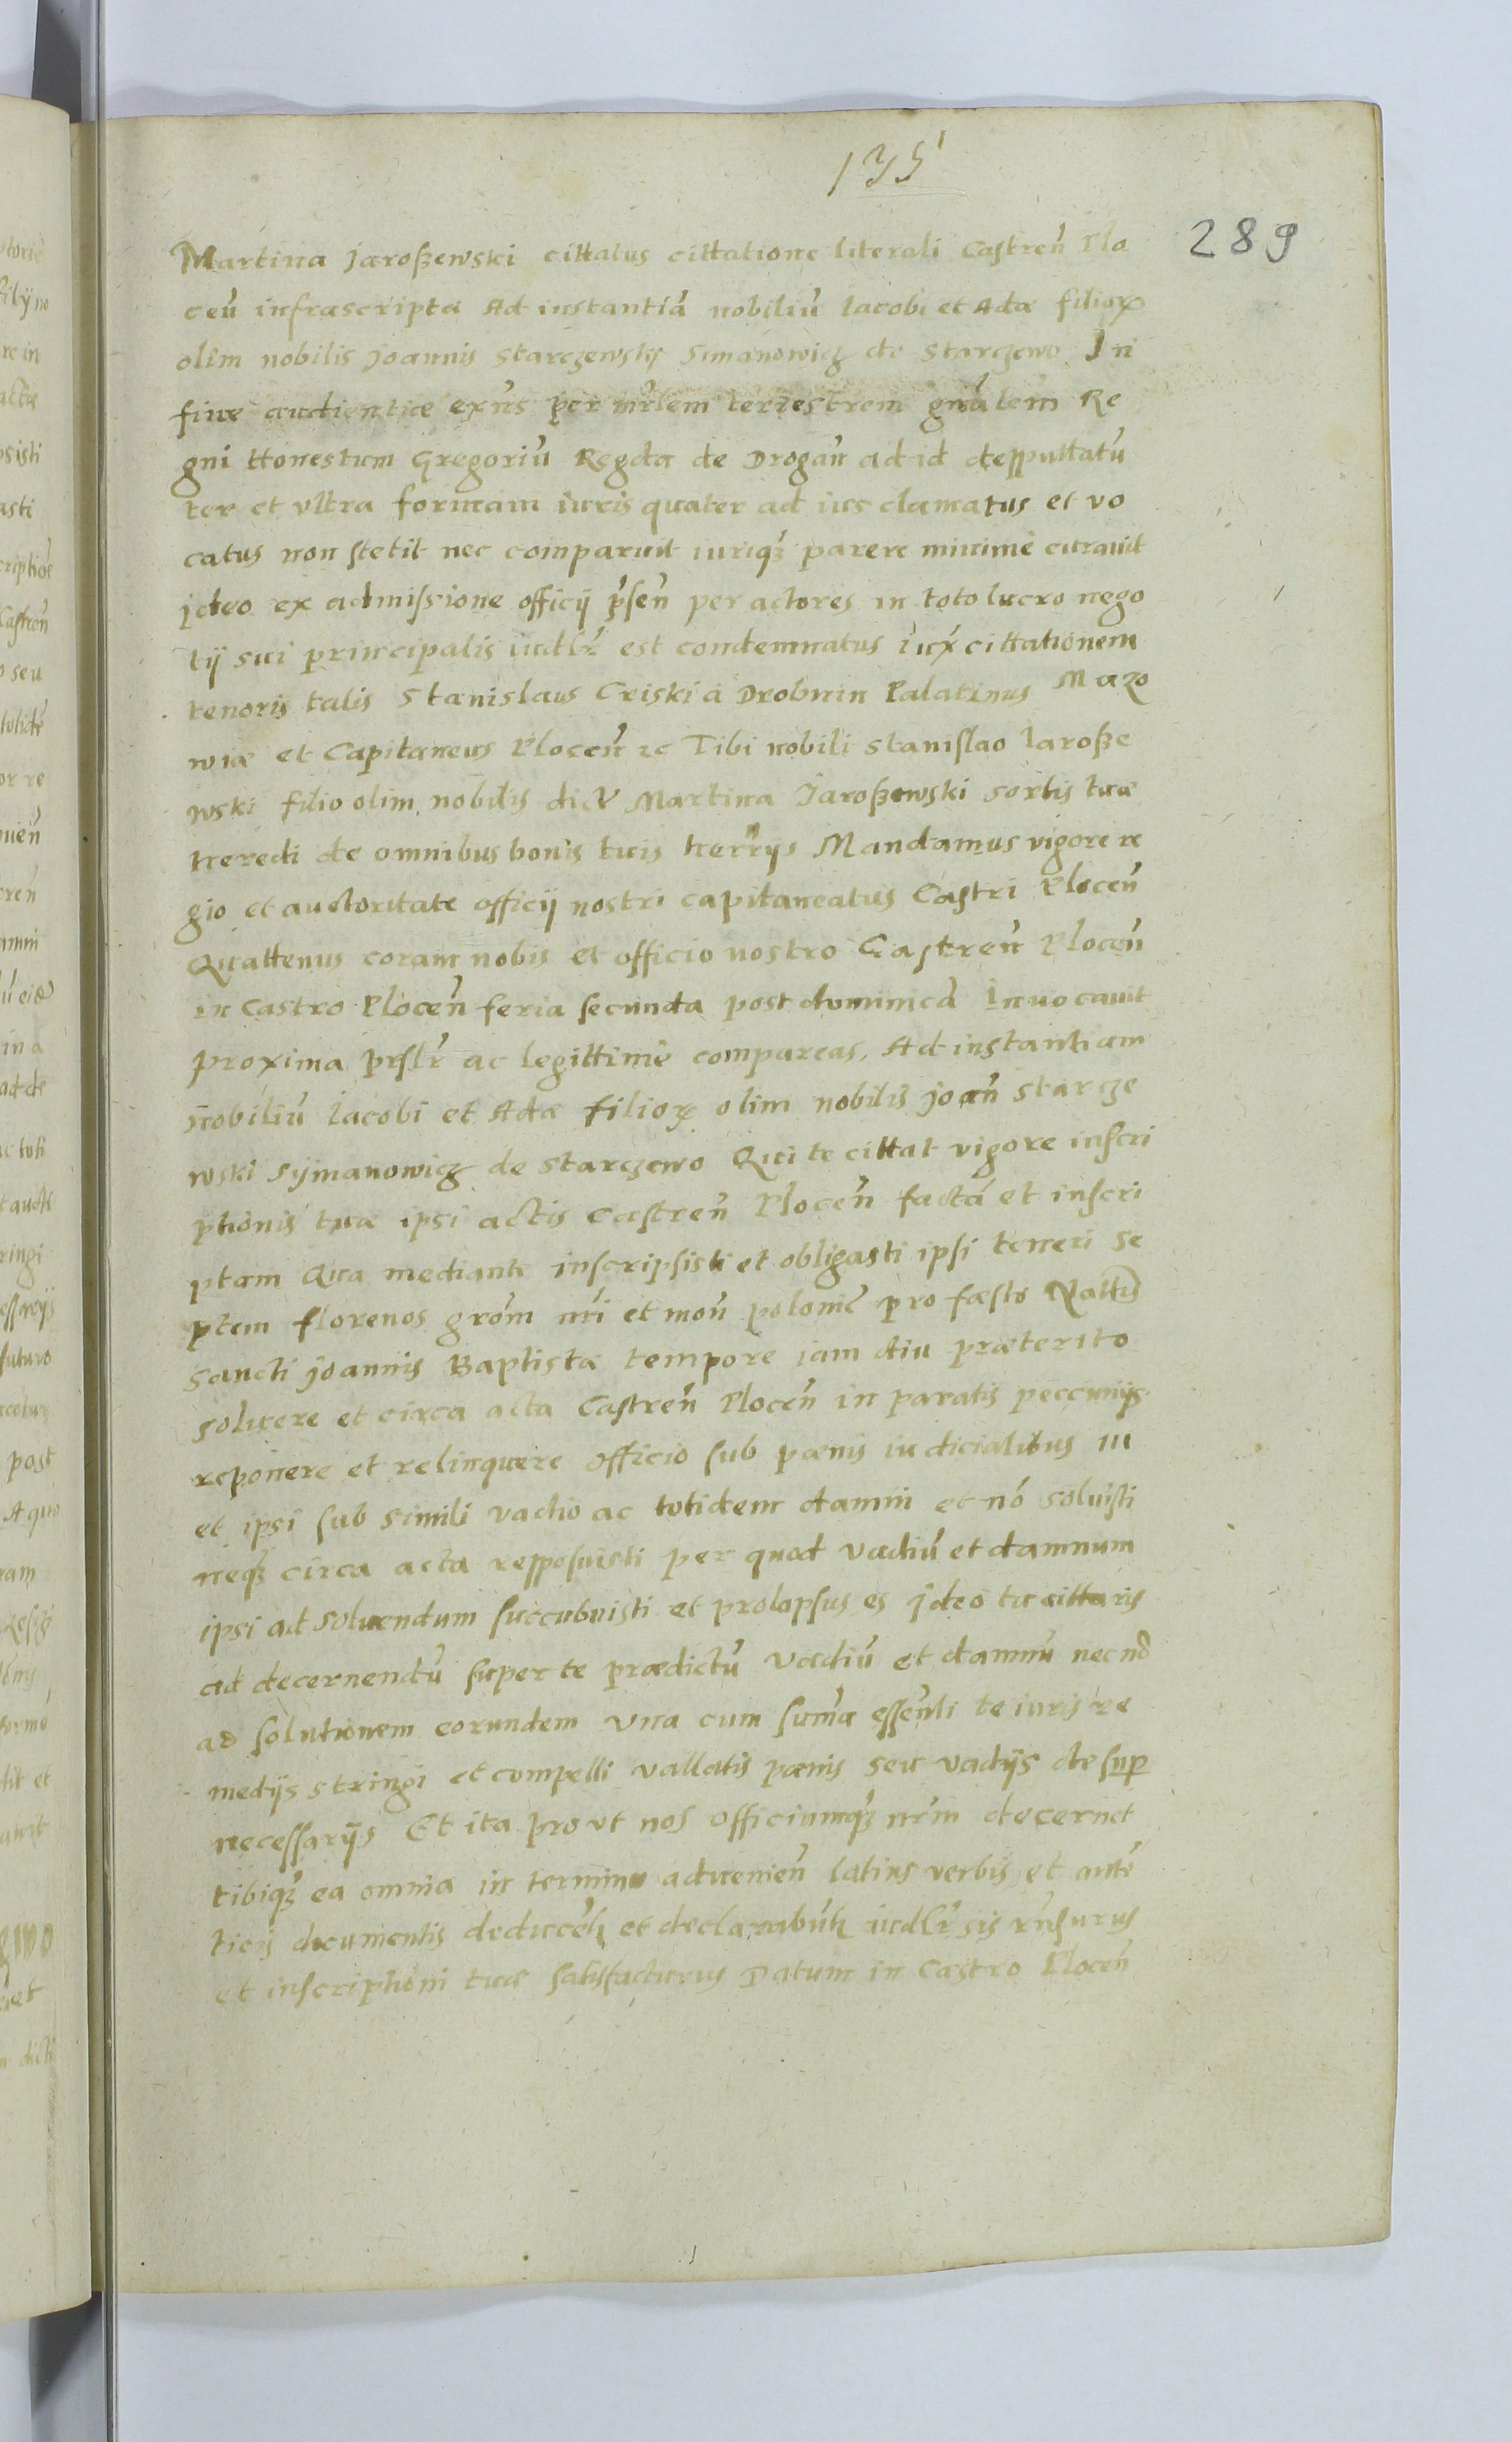 135
289
Martina Jaroßewski cittatus cittatione literali Castreñ Plo
ceñ infrascripta Ad instantiã nobiliũ Iacobi et Adæ filioꝝ
olim nobilis Joannis Starczewsky Simanowicz de Starczewo In
fine audientiæ exñs per mrlem terrestrem gnãlem Re
gni Honestum Gregoriũ Regda de Drogañ ad id desputtatũ
ter et vltra formam iuris quater ad ius clamatus et vo
catus non stetit nec comparuit iuriqꝫ parere minime curauit
Ideo ex admissione officij pr̃señ per actores in toto lucro nego
tij sui principalis iudlr̃ est condemnatus iux̃ cittationem
tenoris talis Stanislaus Criski à Drobnin Palatinus Mazo
wiæ et Capitaneus Ploceñ ꝛc Tibi nobili Stanislao Iaroße
wski filio olim nobilis dicť Martina Jaroßewski sortis tuæ
heredi de omnibus bonis tuis herrijs Mandamus vigore re
gio et auctoritate officij nostri capitaneatus Castri Ploceñ
Quattenus coram nobis et officio nostro Castreñ Ploceñ
in Castro Ploceñ feria secunda post dominicã Inuocauit
proxima prslr̃ ac legittime compareas, Ad instantiam
nobiliũ Iacobi et Adæ filioꝝ olim nobilis Joañ Starcze
wski Symanowicz de Starczewo Qui te cittat vigore inscri
ptionis tuæ ipsi actis Castreñ Ploceñ factã et inscri
ptam Qua mediante inscripsisti et obligasti ipsi teneri se
ptem florenos grom̃ nri et moñ polonic̃ pro fæsto Nattis
Sancti Joannis Baptistæ tempore iam diu præterito
soluere et circa acta Castreñ Ploceñ in paratis peccunijs
reponere et relinquere officio sub pænis iudicialibus III
et ipsi sub simili vadio ac totidem damni et nõ soluisti
neqꝫ circa acta resposuisti per quod vadiũ et damnum
ipsi ad soluendum succubuisti et prolapsus es Ideo tu cittaris
ad decernendũ super te prædictũ vadiũ et damnũ necnõ
ad solutionem eorundem vna cum sum̃a essenli te iuris re
medijs stringi et compelli vallatis pænis seu vadijs desup
necessarijs Et ita prout nos officiumqꝫ nrm decernet
tibiqꝫ ea omnia in termino aduenieñ latius verbis et auten
ticis documentis deducetꝫ et declarabutꝫ iudlr̃ sis rñsurus
et inscriptioni tuæ satisfacturus Datum in Castro Ploceñ